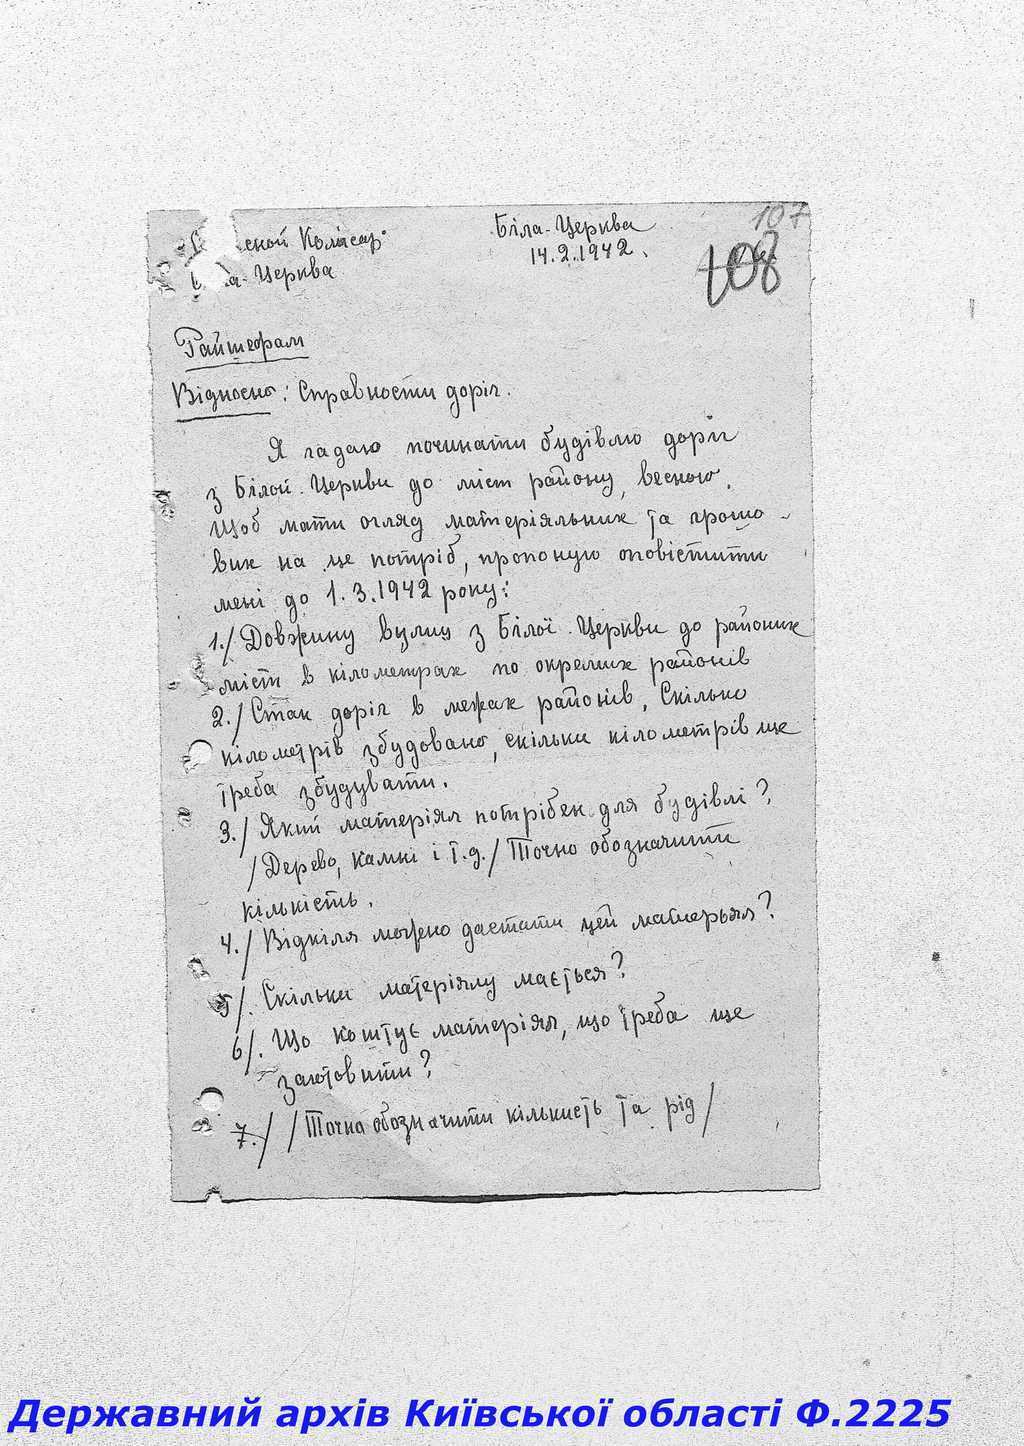 Біла-Церква
107
сной Комісар
14.2.1942.
108
Церква
Райшефам
Відносно: Справности доріг.
Я гадаю починати будівлю доріг
з Білой-Церкви до міст району, весною.
Щоб мати огляд матеріяльних та грошо-
вих на це потріб, пропоную оповістити
мені до 1.3.1942 року:
1./ Довжину вулиц з Білої-Церкви до районих
міст в кілометрах по окремих районів
2./ Стан доріг в межах районів, Скілько
кілометрів збудовано, скільки кілометрів ще
треба збудувати.
3./ Який матеріял потрібен для будівлі?
/Дерево, камні і т.д./ Точно обозначити
кількість.
4./ Відкіля можно дастати цей матерьял?
5/. Скільки матеріялу мається?
6/. Що коштує матеріял, що треба ще
заготовити?
7./ /Точно обозначити кількисть та рід/
Державний архів Київської області Ф.2225